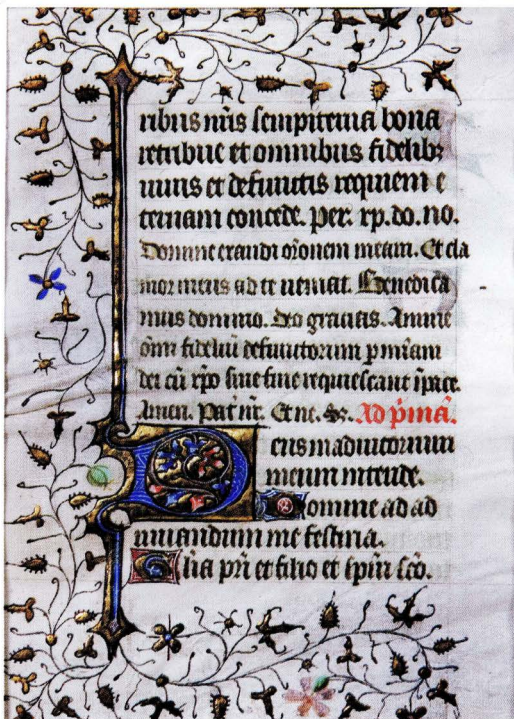 ribus nr̄is sempiterna bona
retribue et omnibus fidelibꝫ
uiuis et defunctis requiem e
ternam concede. per. xp̄. do. no.
Domine exaudi or̄onem meam. Et cla
mor meus ad te ueniat. Benedica
mus domino. deo gracias. Anime
om̄i fideliū defunctorum p miam̄
dei cū xp̄o sine fine requiescant ī pace.
Amen. Pat̄ nr̄. Et ne. S;. Ad p̄mā.
Deus in adiutorium
meum intende.
Domine ad ad
iuuandum me festina.
Gl̄ia pr̄i et filio et sp̄ui sc̄o.